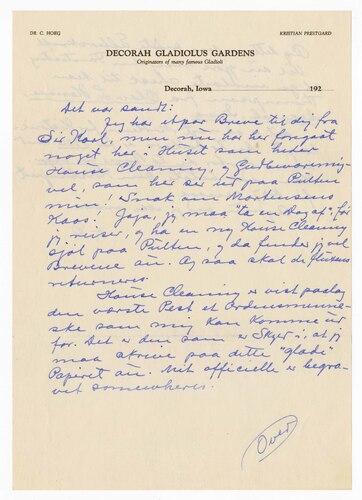 DR. C. HOEG
KRISTIAN PRESTGARD
DECORAH GLADIOLUS GARDENS
Originators of many famous Gladioli
Decorah, Iowa 192
Det var sandt:
Jeg har et par Breve til dig fra
Sir Karl, men nu har her foregaat
noget her i Huset som heder
House Cleaning, og Gud bevare mig
vel, som her ser ud paa Pulten
min! Snak om Mortensens
Kaos! Jaja, jeg maa "ta en Dag af" før
jeg reiser, og ha en ny House Cleaning
sjøl paa Pulten, og da finder jeg vel
Brevene au. Og saa skal de
returneres.
House Cleaning er vist paalag
den værste Pest et Ordensmenne-
ske som mig kan komme ud
for. Det er den som er Skyld i, at jeg
maa skrive paa dette "gladi"
Papiret au. Mit officielle er begra-
vet somewheres.
Over